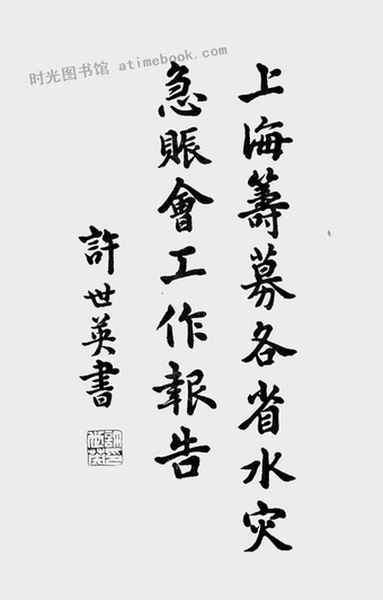 时光图书馆 atimebook.com
上海籌募各省水灾
急賑會工作報告
許世英書